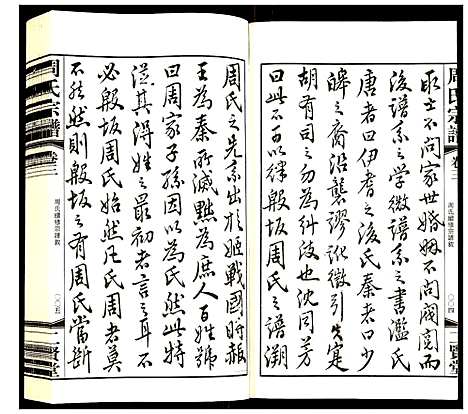 周氏宗譜
卷三
周氏續修宗譜敘
〇〇四
一賢堂
取士不問家世婚姻不問閥閱而
後譜系之學微譜系之書濫氏
唐者曰伊耆之後氏秦者曰少
皞之裔沿襲謬訛徵引失寔
胡有所忌為糾波也沈同芳
曰此不可以繩殷坂周氏之譜溯
周氏之先系出於姬戰國時赧
王為秦所滅黜為庶人百姓號
曰周家子孫因以為氏然此特
溯其得姓之最初者言之耳不
必殷坂周氏始然凡氏周者莫
不然然則殷坂之有周氏當斷
周氏宗譜
卷三
周氏續修宗譜敘
〇〇五
一賢堂